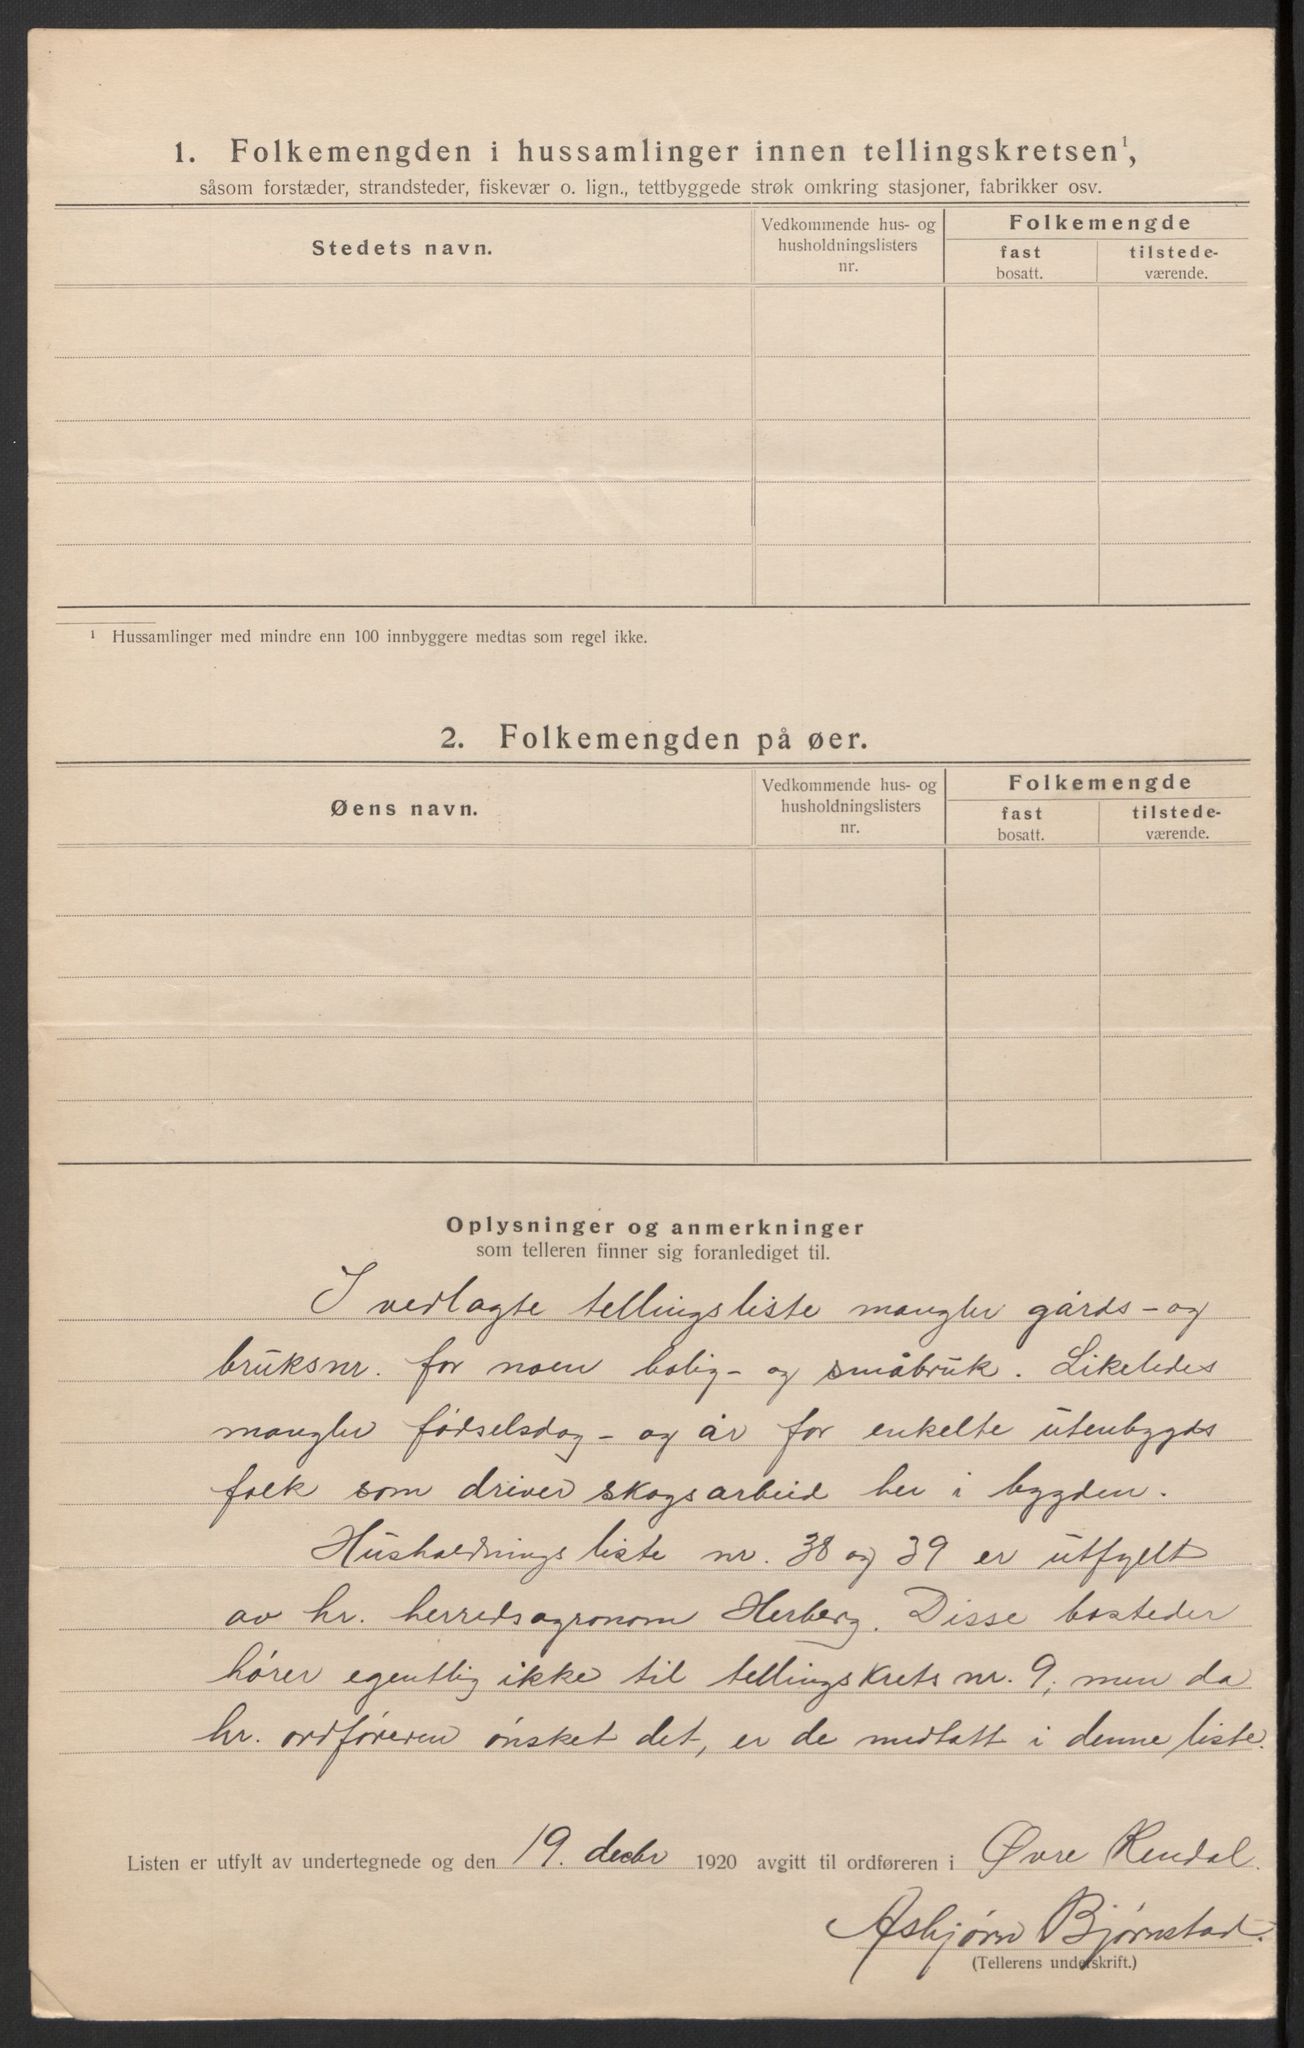 1. Folkemengden i hussamlinger innen tellingskretsen¹,
såsom forstæder, strandsteder, fiskevær o. lign., tettbyggede strøk omkring stasjoner, fabrikker osv.
Stedets navn.
Vedkommende hus- og
husholdningslisters
nr.
Folkemengde
fast
bosatt.
tilstede-
værende.
¹ Hussamlinger med mindre enn 100 innbyggere medtas som regel ikke.
2. Folkemengden på øer.
Øens navn.
Vedkommende hus- og
husholdningslisters
nr.
Folkemengde
fast
bosatt.
tilstede-
værende.
Oplysninger og anmerkninger
som telleren finner sig foranlediget til.
I vedlagte tellingsliste mangler gårds- og
bruksnr. for noen bolig- og småbruk. Likeledes
mangler fødselsdag- og år for enkelte utenbygds
folk som driver skogsarbeid her i bygden.
Husholdningsliste nr. 38 og 39 er utfyllt
av hr. herredsagronom Herberg. Disse bosteder
hører egentlig ikke til tellingskrets nr. 9, men da
hr. ordføreren ønsket det, er de medtatt i denne liste.
Listen er utfylt av undertegnede og den 19. decbr 1920 avgitt til ordføreren i Øvre Rendal.
Asbjørn Bjørnstad.
(Tellerens underskrift.)